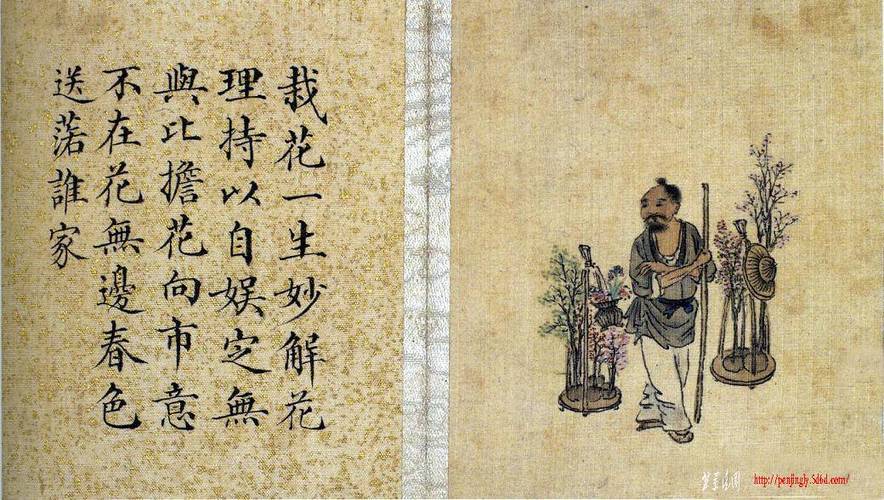 栽花一生妙解花
理持以自娱定無
與比擔花向市意
不在花無邊春色
送落誰家
http://penjingly.5d6d.com/